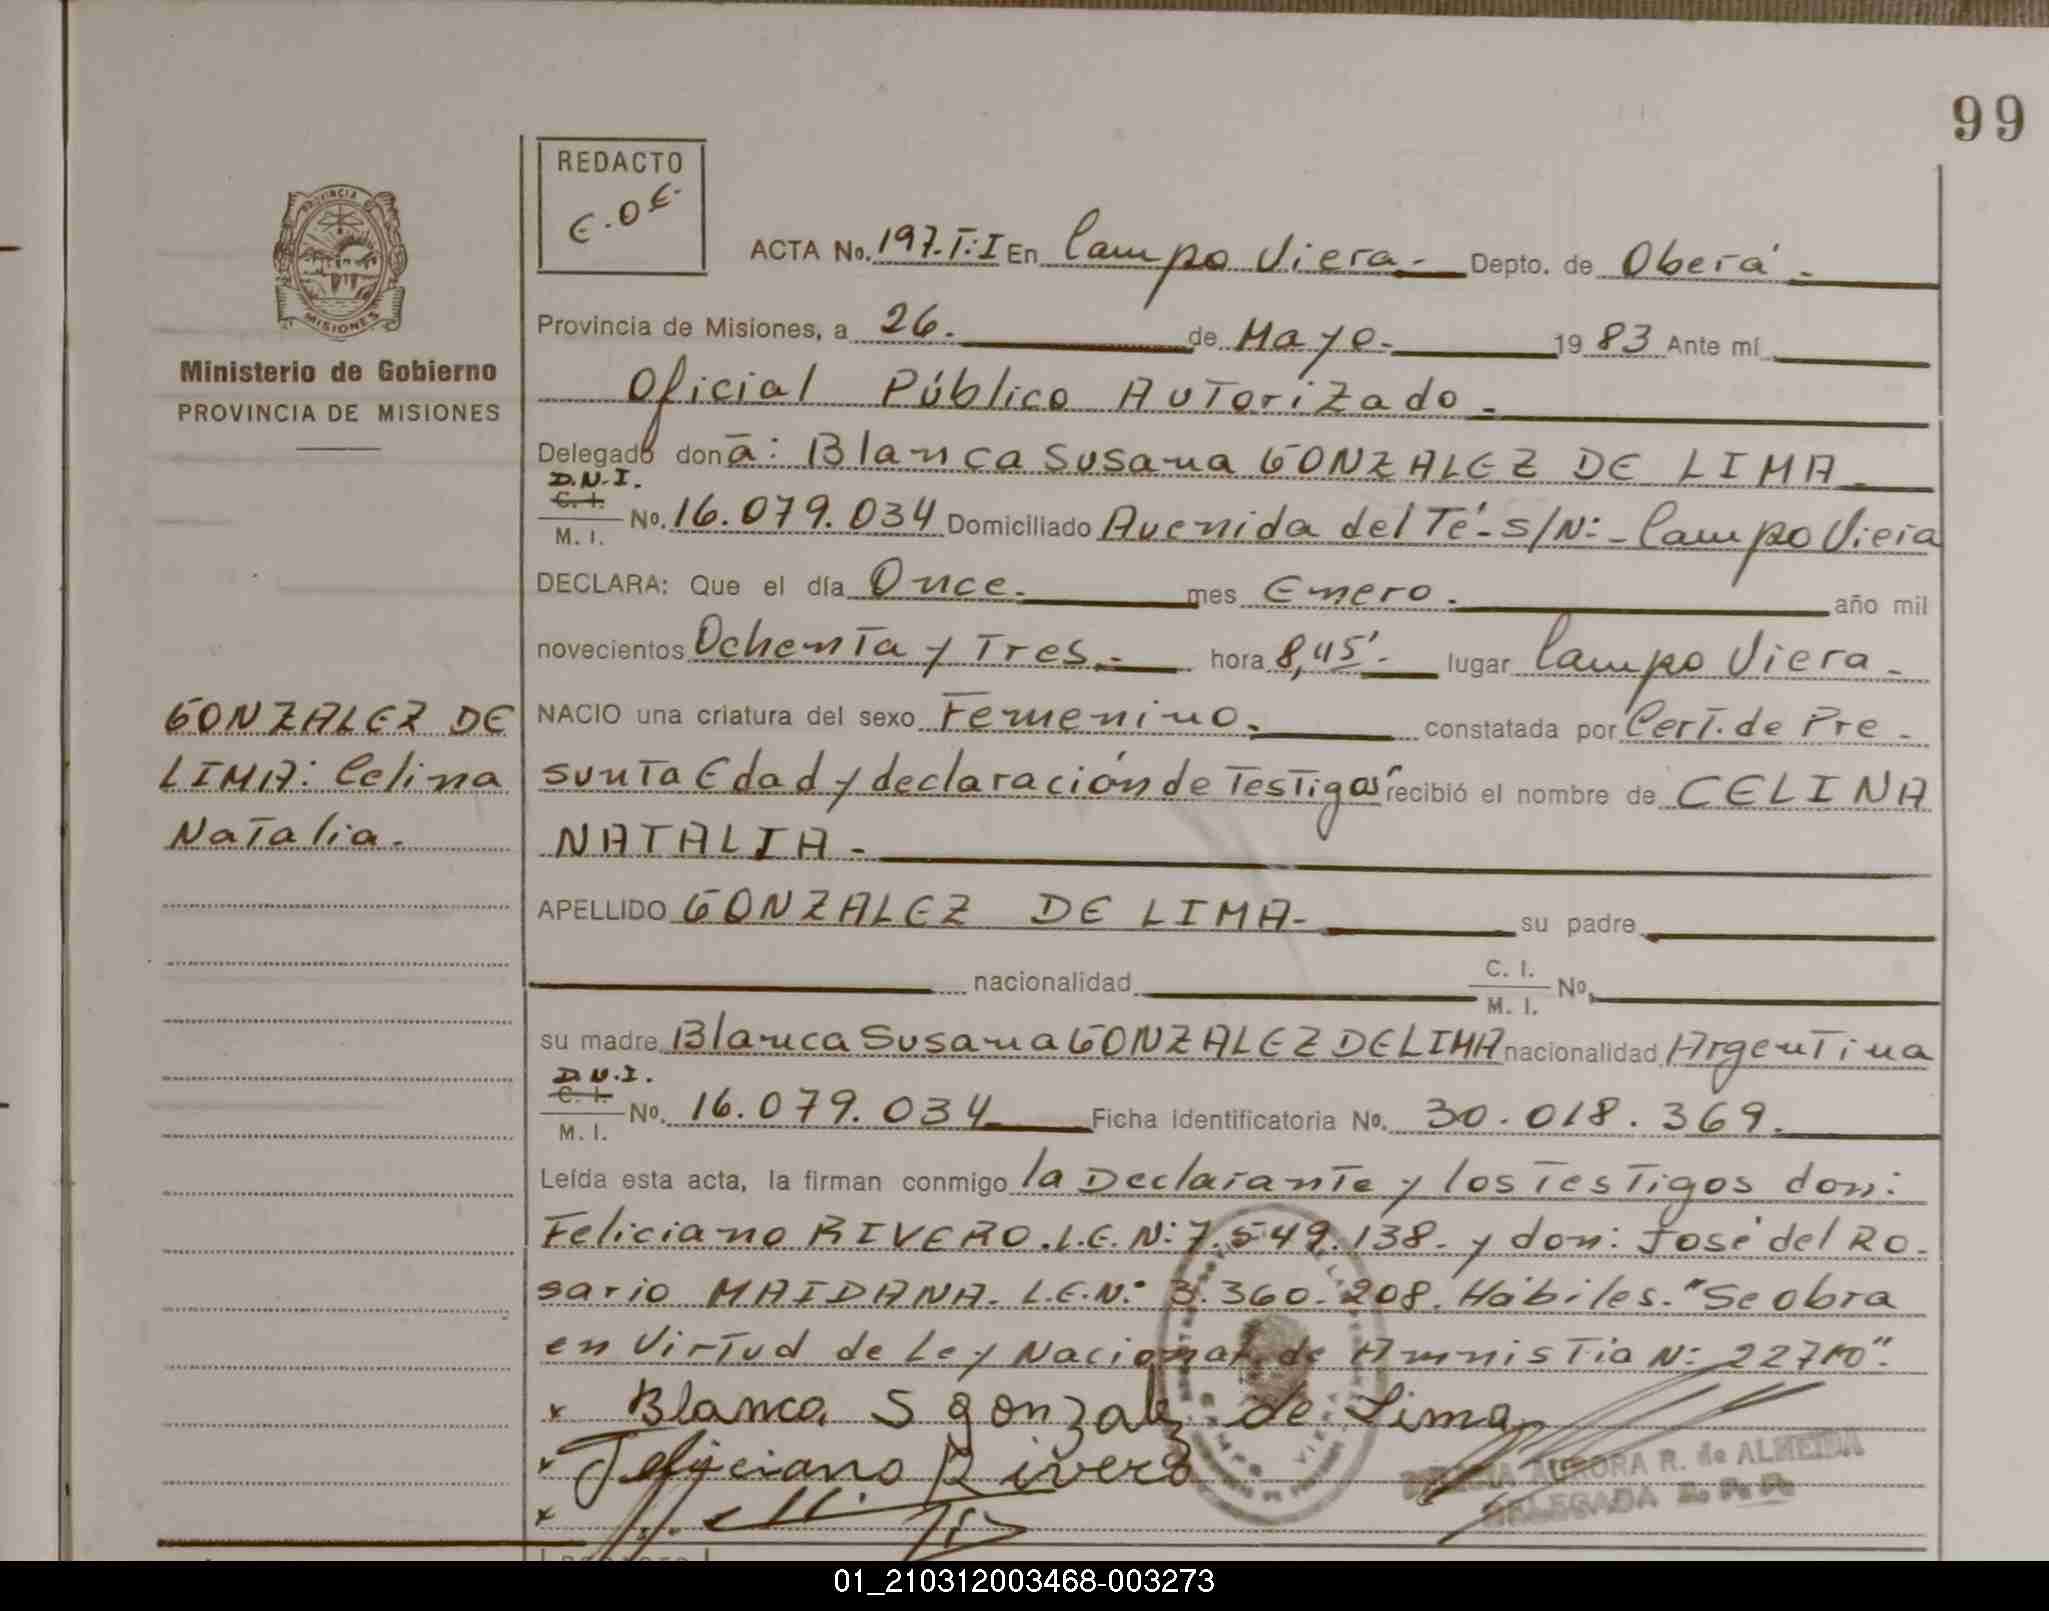 99
REDACTO
E.O.E.
PROVINCIA D
MISIONES
Ministerio de Gobierno
PROVINCIA DE MISIONES
ACTA No. 197.T:I En Campo Viera.- Depto. de Oberá.-
Provincia de Misiones, a 26. de Mayo. 1983 Ante mí
Oficial Público Autorizado.
Delegado donã: Blanca Susana GONZALEZ DE LIMA
D.N.I.
C. I.
M. I. No. 16.079.034 Domiciliado Avenida del Té.- S/N:- Campo Viera
DECLARA: Que el día Once. mes Enero. año mil
novecientos Ochenta y Tres.- hora 8,45'.- lugar Campo Viera.
NACIO una criatura del sexo Femenino. constatada por Cert. de Pre-
sunta Edad y declaración de Testigos recibió el nombre de CELINA
NATALIA.-
GONZALEZ DE
LIMA: Celina
Natalia.
APELLIDO GONZALEZ DE LIMA- su padre
nacionalidad C. I.
M. I. No.
su madre Blanca Susana GONZALEZ DE LIMA nacionalidad Argentina
D.N.I.
C. I.
M. I. No. 16.079.034 Ficha identificatoria No. 30.018.369.
Leída esta acta, la firman conmigo la Declarante y los Testigos don:
Feliciano RIVERO. L.E.N:7.549.138. y don: José del Ro-
sario MAIDANA. L.E.N:° 3.360.208. Hábiles. "Se obra
en Virtud de Ley Nacional de Amnistia N: 22710".
x Blanca S gonzalez de Lima
x Feliciano Rivero
x
AURORA R. de ALMEIDA
DELEGADA
REDACTO
01_210312003468-003273